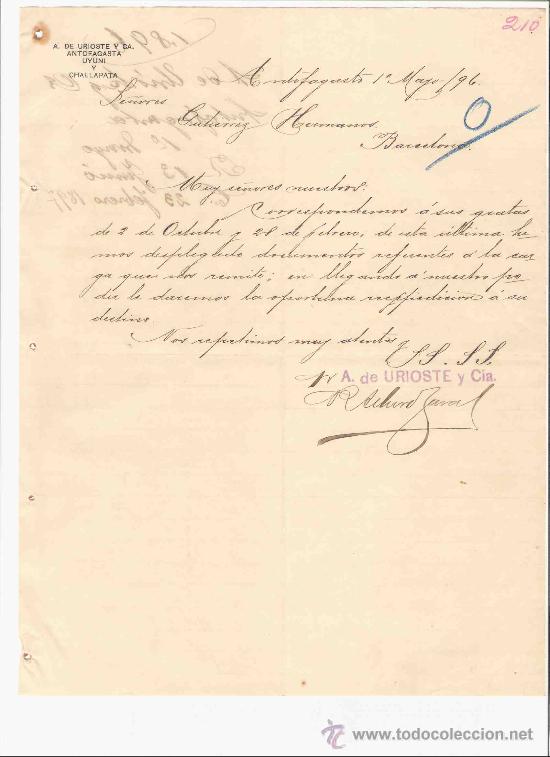 210
A. DE URIOSTE Y CA.
ANTOFAGASTA
UYUNI
Y
CHALLAPATA
Antofagasta 1º Mayo/96.
Señores
Gutierrez Hermanos
Barcelona.
Muy señores nuestros:
Correspondemos á sus gratas
de 2 de Octubre y 28 de febrero, de esta última he
mos desplegado documentos referentes á la car
ga que nos remite; en llegando á nuestro po
der le daremos la oportuna reexpedicion á su
destino
Nos repetimos muy atentos
SS. SS.
A. de URIOSTE y Cia.
Arturo
todocoleccion
www.todocoleccion.net